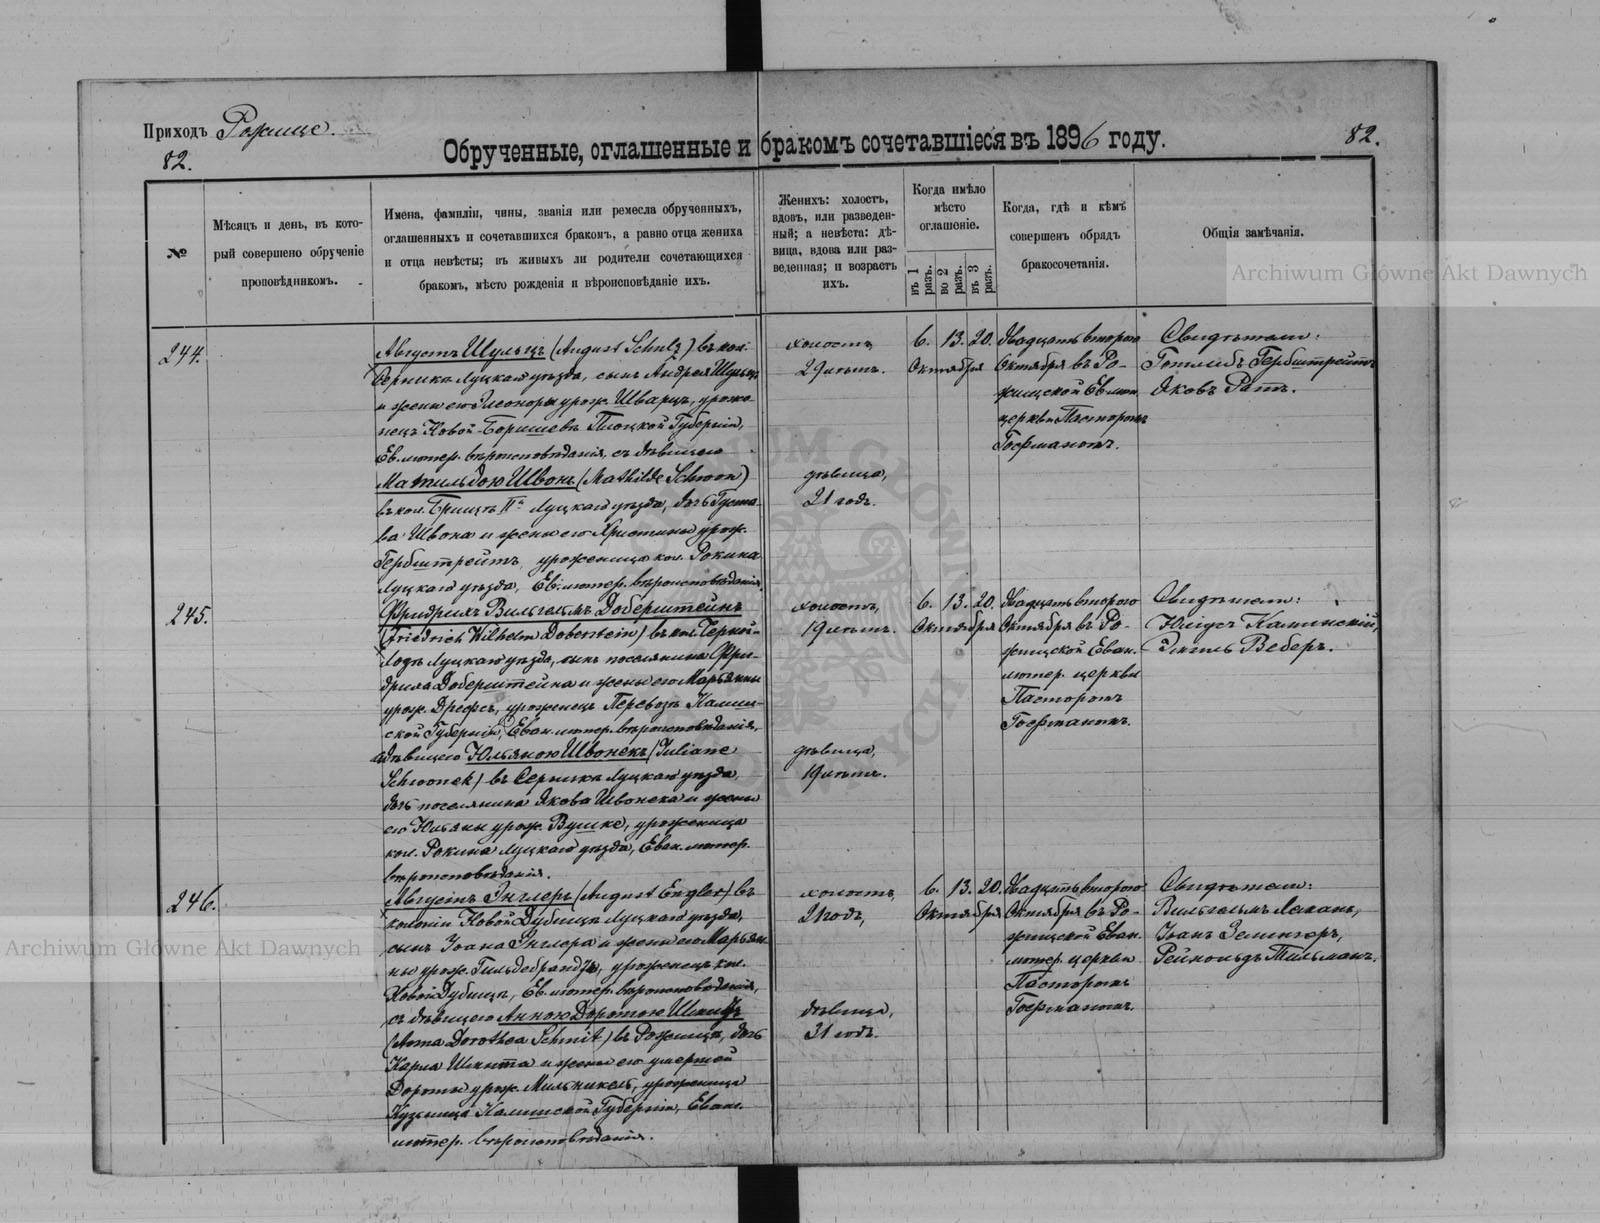 Приходъ Рожище.
82.
Обрученные, оглашенные и бракомъ сочетавшіеся въ 1896 году.
82.
№
Мѣсяцъ и день, въ кото-
рый совершено обрученіе
проповѣдникомъ.
Имена, фамиліи, чины, званія или ремесла обрученныхъ,
оглашенныхъ и сочетавшихся бракомъ, а равно отца жениха
и отца невѣсты; въ живыхъ ли родители сочетающихся
бракомъ, мѣсто рожденія и вѣроисповѣданіе ихъ.
Женихъ: холостъ,
вдовъ, или разведен-
ный; а невѣста: дѣ-
вица, вдова или раз-
веденная; и возрастъ
ихъ.
Когда имѣло
мѣсто
оглашеніе.
въ 1 разъ.
во 2 разъ.
въ 3 разъ.
Когда, гдѣ и кѣмъ
совершенъ обрядъ
бракосочетанія.
Общія замѣчанія.
Archiwum Główne Akt Dawnych
244.
Августъ Шульцъ (August Schulz) въ кол.
Серникъ Луцкаго уѣзда, сынъ Андрея Шульца
и жены его Элеоноры урож. Шварцъ, уроже-
нецъ Новой-Боришевъ Плоцкой Губерніи,
Ев. лютер. вѣроисповѣданія, съ дѣвицею
Матильдою Швонъ (Mathilde Schwon)
въ кол. Брищъ II Луцкаго уѣзда, дочь Густа-
ва Швона и жены его Христины урож.
Гербштрейтъ, уроженица кол. Рокина
Луцкаго уѣзда, Ев. лютер. вѣроисповѣданія.
холостъ,
29 лѣтъ.
дѣвица,
21 годъ.
6. 13. 20.
Октября
Двадцать второго
Октября въ Ро-
жищской Ев. лют.
церкви Пасторомъ
Госрманомъ.
Свидѣтели:
Готлибъ Гербштрейтъ
Яковъ Ратъ.
245.
Фридрихъ Вильгельмъ Доберштейнъ
(Friedrich Wilhelm Doberstein) въ кол. Черной-
Лодъ Луцкаго уѣзда, сынъ поселянина Фри-
дриха Доберштейна и жены его Марьянны
урож. Дрефсъ, уроженецъ Перевозъ Калиш-
ской Губерніи, Еван. лютер. вѣроисповѣданія,
съ дѣвицею Юльяною Швонекъ (Juliane
Schwonek) въ Серникъ Луцкаго уѣзда,
дочь поселянина Якова Швонека и жены
его Юльяны урож. Вушке, уроженица
кол. Рокина Луцкаго уѣзда, Еван. лютер.
вѣроисповѣданія.
холостъ,
19 лѣтъ.
дѣвица,
19 лѣтъ.
6. 13. 20.
Октября
Двадцать второго
Октября въ Ро-
жищской Еван.
лютер. церкви
Пасторомъ
Госрманомъ.
Свидѣтели:
Юліусъ Калинскій,
Энгель Веберъ.
246.
Августъ Энглеръ (August Engler) въ
колоніи Новой Дубищъ Луцкаго уѣзда,
сынъ Іоана Энглера и жены его Марьян-
ны урож. Гильдебрандтъ, уроженецъ кол.
Новой Дубищъ, Ев. лютер. вѣроисповѣданія,
съ дѣвицею Анною Доротою Шмидъ
(Anna Dorothea Schmit) въ Рожищъ, дочь
Карла Шмита и жены его умершей
Дороты урож. Мильникель, уроженица
Кузница Калишской Губерніи, Еван.
лютер. вѣроисповѣданія.
холостъ,
21 годъ,
дѣвица,
31 годъ.
6. 13. 20.
Октября
Двадцать второго
Октября въ Ро-
жищской Еван.
лютер. церкви
Пасторомъ
Госрманомъ.
Свидѣтели:
Вильгельмъ Леканъ,
Іоанъ Зелингеръ,
Рейнольдъ Тильманъ.
Archiwum Główne Akt Dawnych